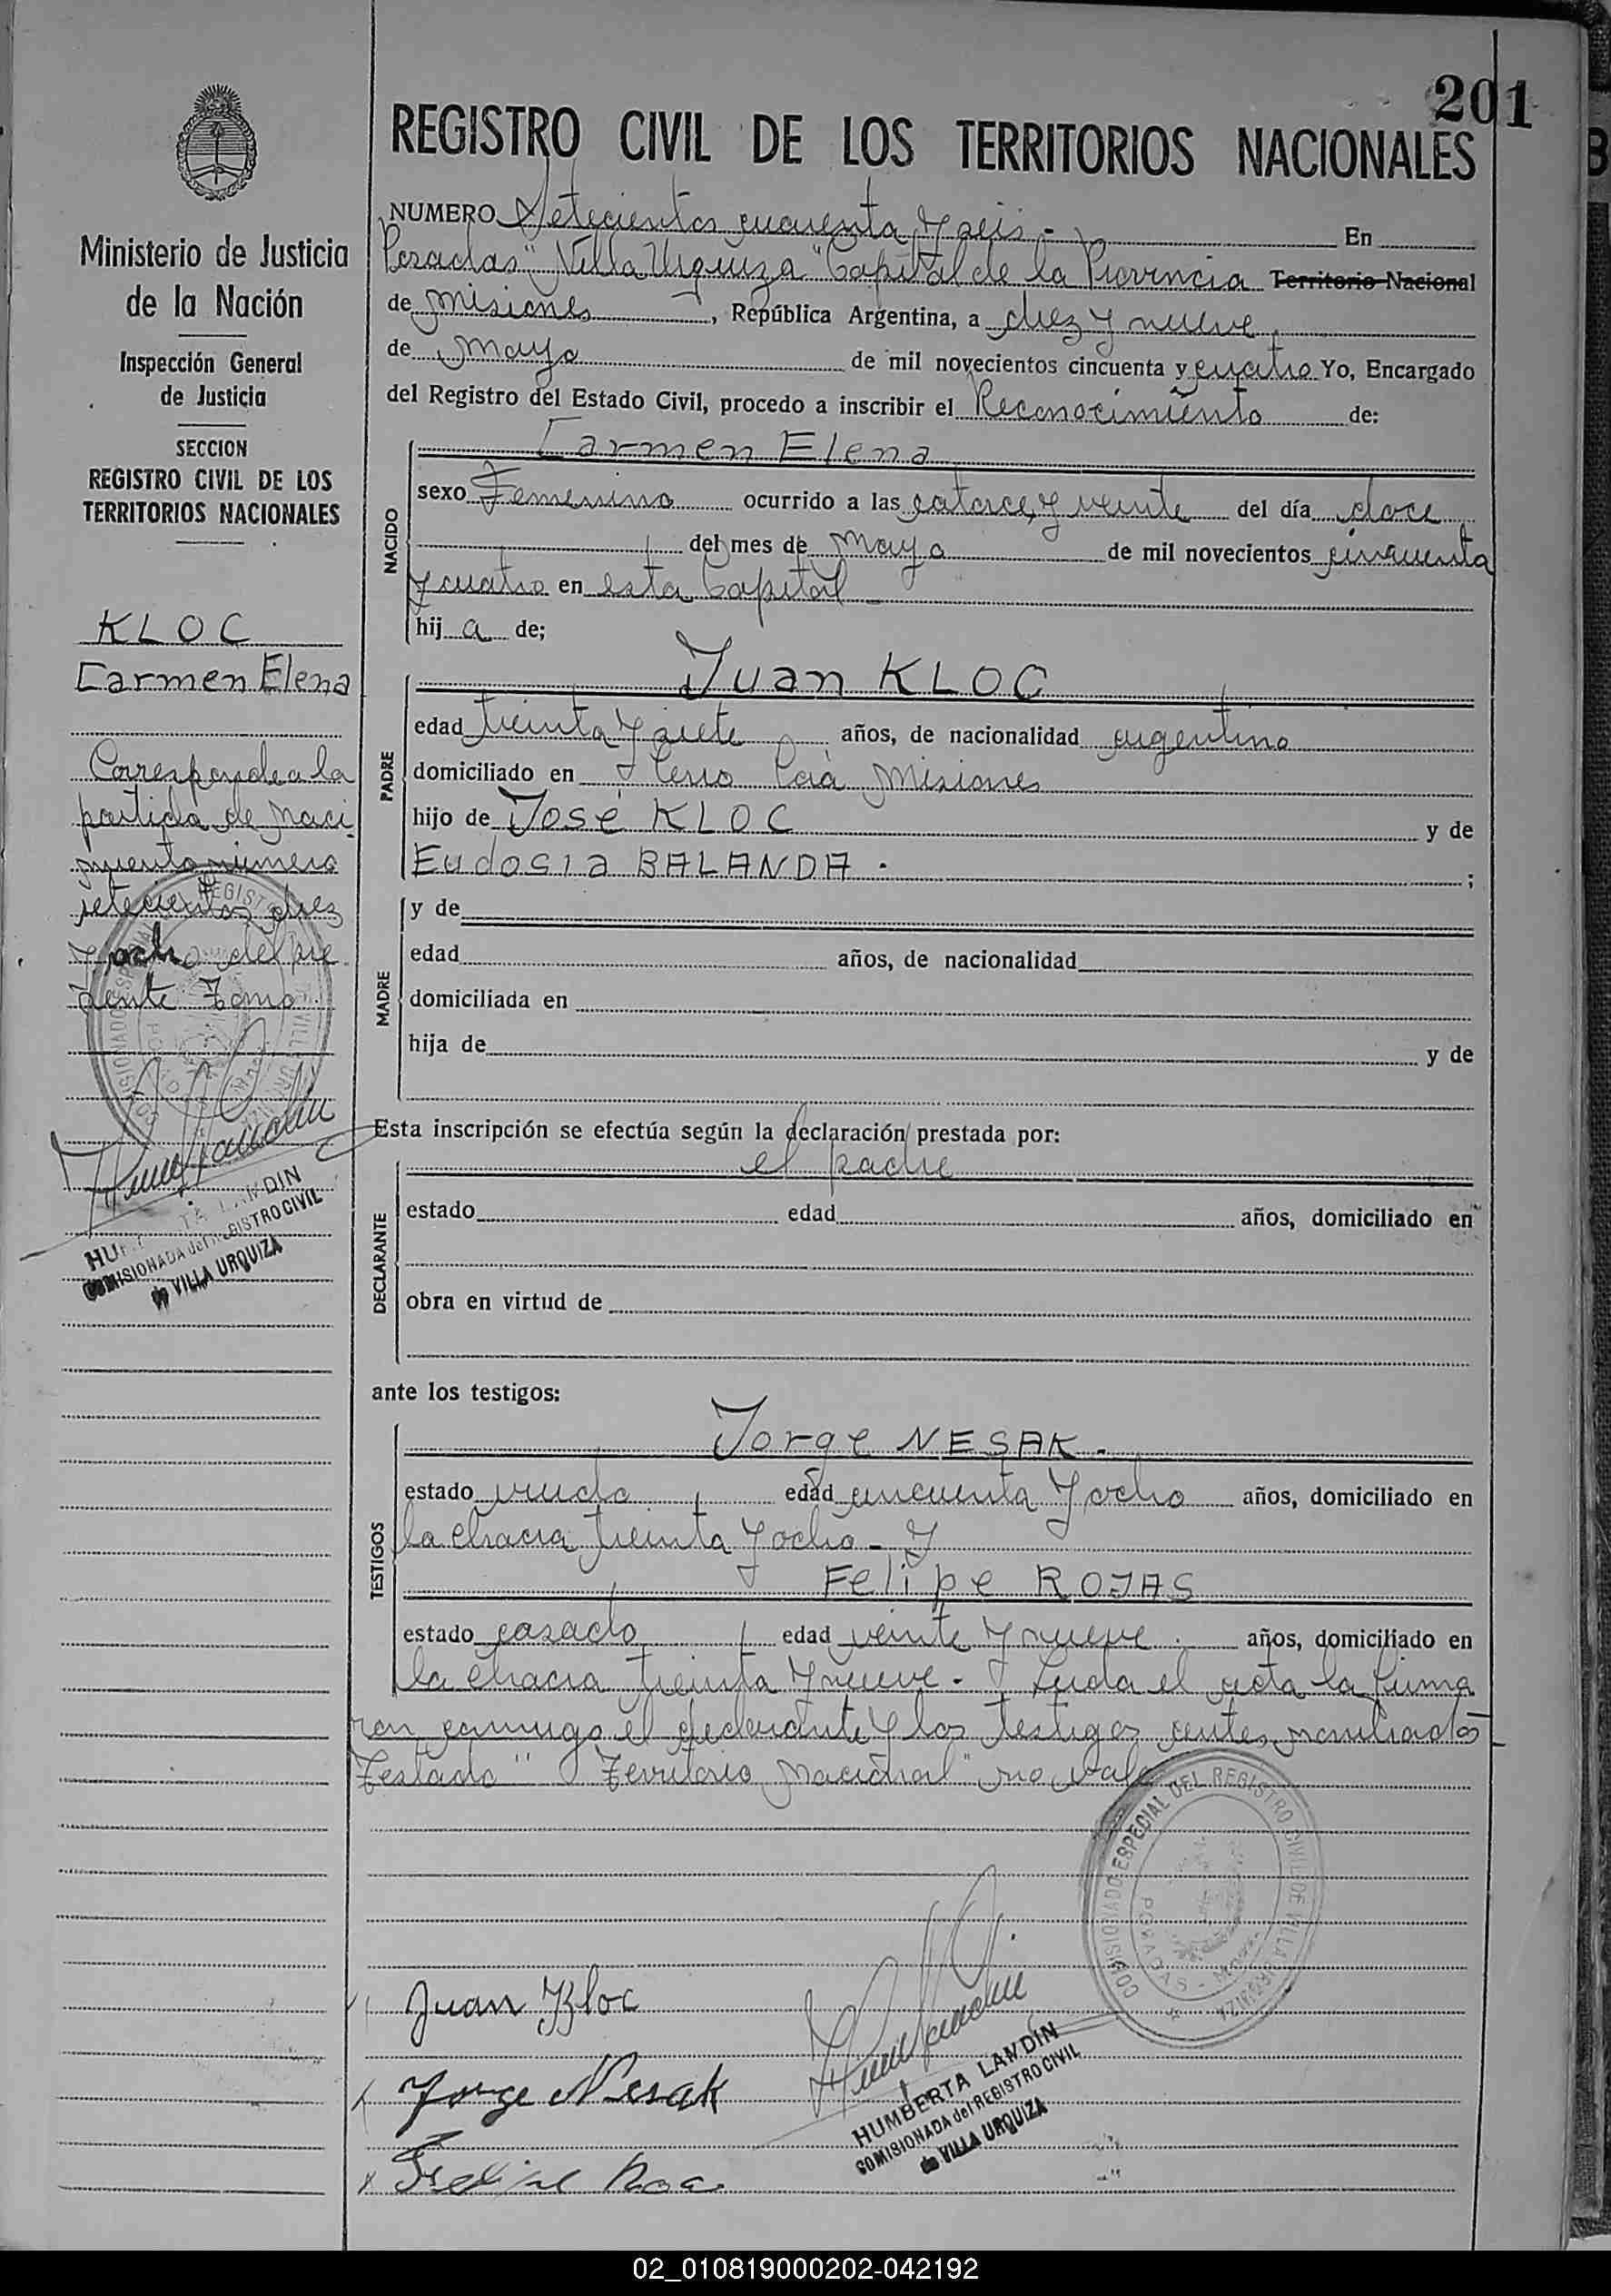 201
REGISTRO CIVIL DE LOS TERRITORIOS NACIONALES
Ministerio de Justicia
de la Nación
Inspección General
de Justicia
SECCION
REGISTRO CIVIL DE LOS
TERRITORIOS NACIONALES
KLOC
Carmen Elena
Corresponde a la
partida de naci
miento número
setecientos diez
y ocho del pre
sente Tomo.
REGISTRO
HU TA LANDIN
COMISIONADA del REGISTRO CIVIL
de VILLA URQUIZA
NUMERO Setecientos cuarenta y seis.- En
Posadas "Villa Urquiza" Capital de la Provincia Territorio Nacional
de Misiones, República Argentina, a diez y nueve
de Mayo de mil novecientos cincuenta y cuatro Yo, Encargado
del Registro del Estado Civil, procedo a inscribir el Reconocimiento de:
NACIDO
Carmen Elena
sexo Femenino ocurrido a las catorce y veinte del día doce
del mes de Mayo de mil novecientos cincuenta
y cuatro en esta Capital
hija de;
PADRE
Juan KLOC
edad treinta y siete años, de nacionalidad argentino
domiciliado en Cerro Corá Misiones
hijo de José KLOC y de
Eudosia BALANDA.;
MADRE
y de
edad años, de nacionalidad
domiciliada en
hija de y de
Esta inscripción se efectúa según la declaración prestada por:
DECLARANTE
el padre
estado edad años, domiciliado en
obra en virtud de
ante los testigos:
TESTIGOS
Jorge NESAK.
estado viudo edad cincuenta y ocho años, domiciliado en
la chacra treinta y ocho - y
Felipe ROJAS
estado casado edad veinte y nueve. años, domiciliado en
la chacra treinta y nueve. - Leida el acta la firma
ron conmigo el declarante y los testigos antes nombrados
Testado "Territorio Nacional" no vale
COMISIONADO ESPECIAL DEL REGISTRO CIVIL DE VILLA URQUIZA
POSADAS - MISIONES
Juan Kloc
Jorge Nesak
HUMBERTA LANDIN
COMISIONADA del REGISTRO CIVIL
de VILLA URQUIZA
02_010819000202-042192